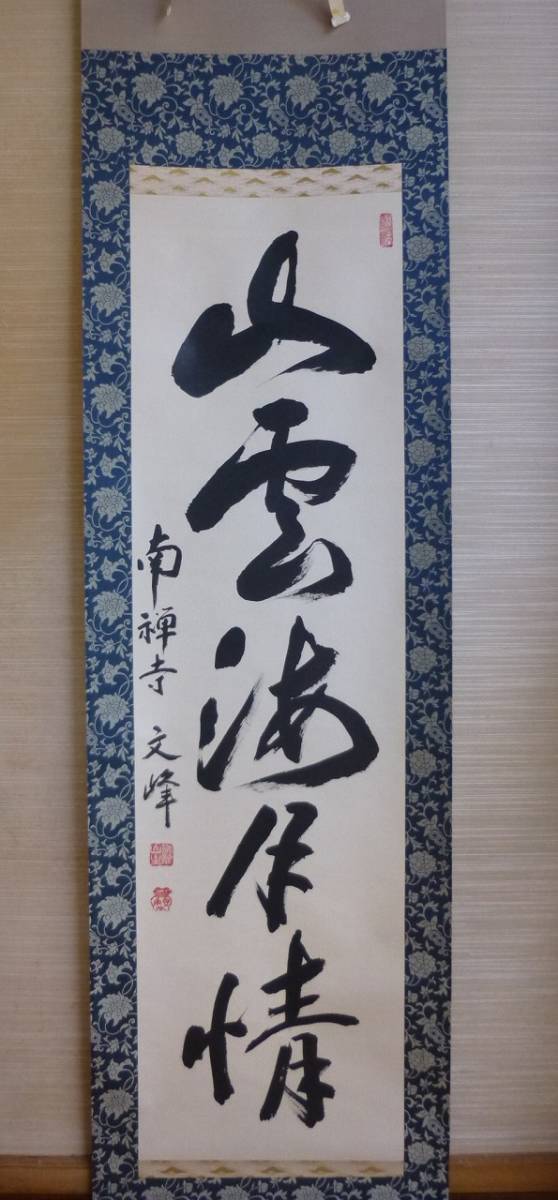 山雲海月情
南禅寺 文峰